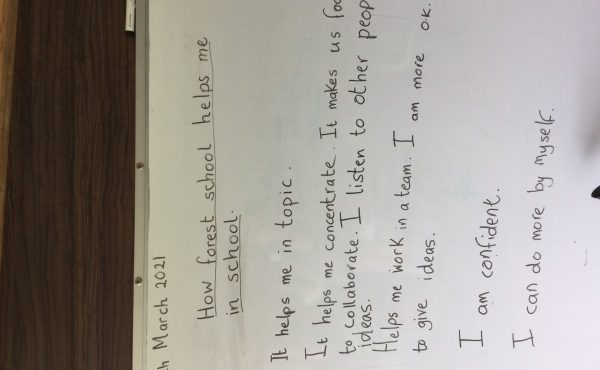 March 2021
How forest school helps me
in school.
It helps me in topic.
It helps me concentrate. It makes us
to collaborate. I listen to other
ideas.
Helps me work in a team. I am more ok.
to give ideas.
I am confident.
I can do more by myself.